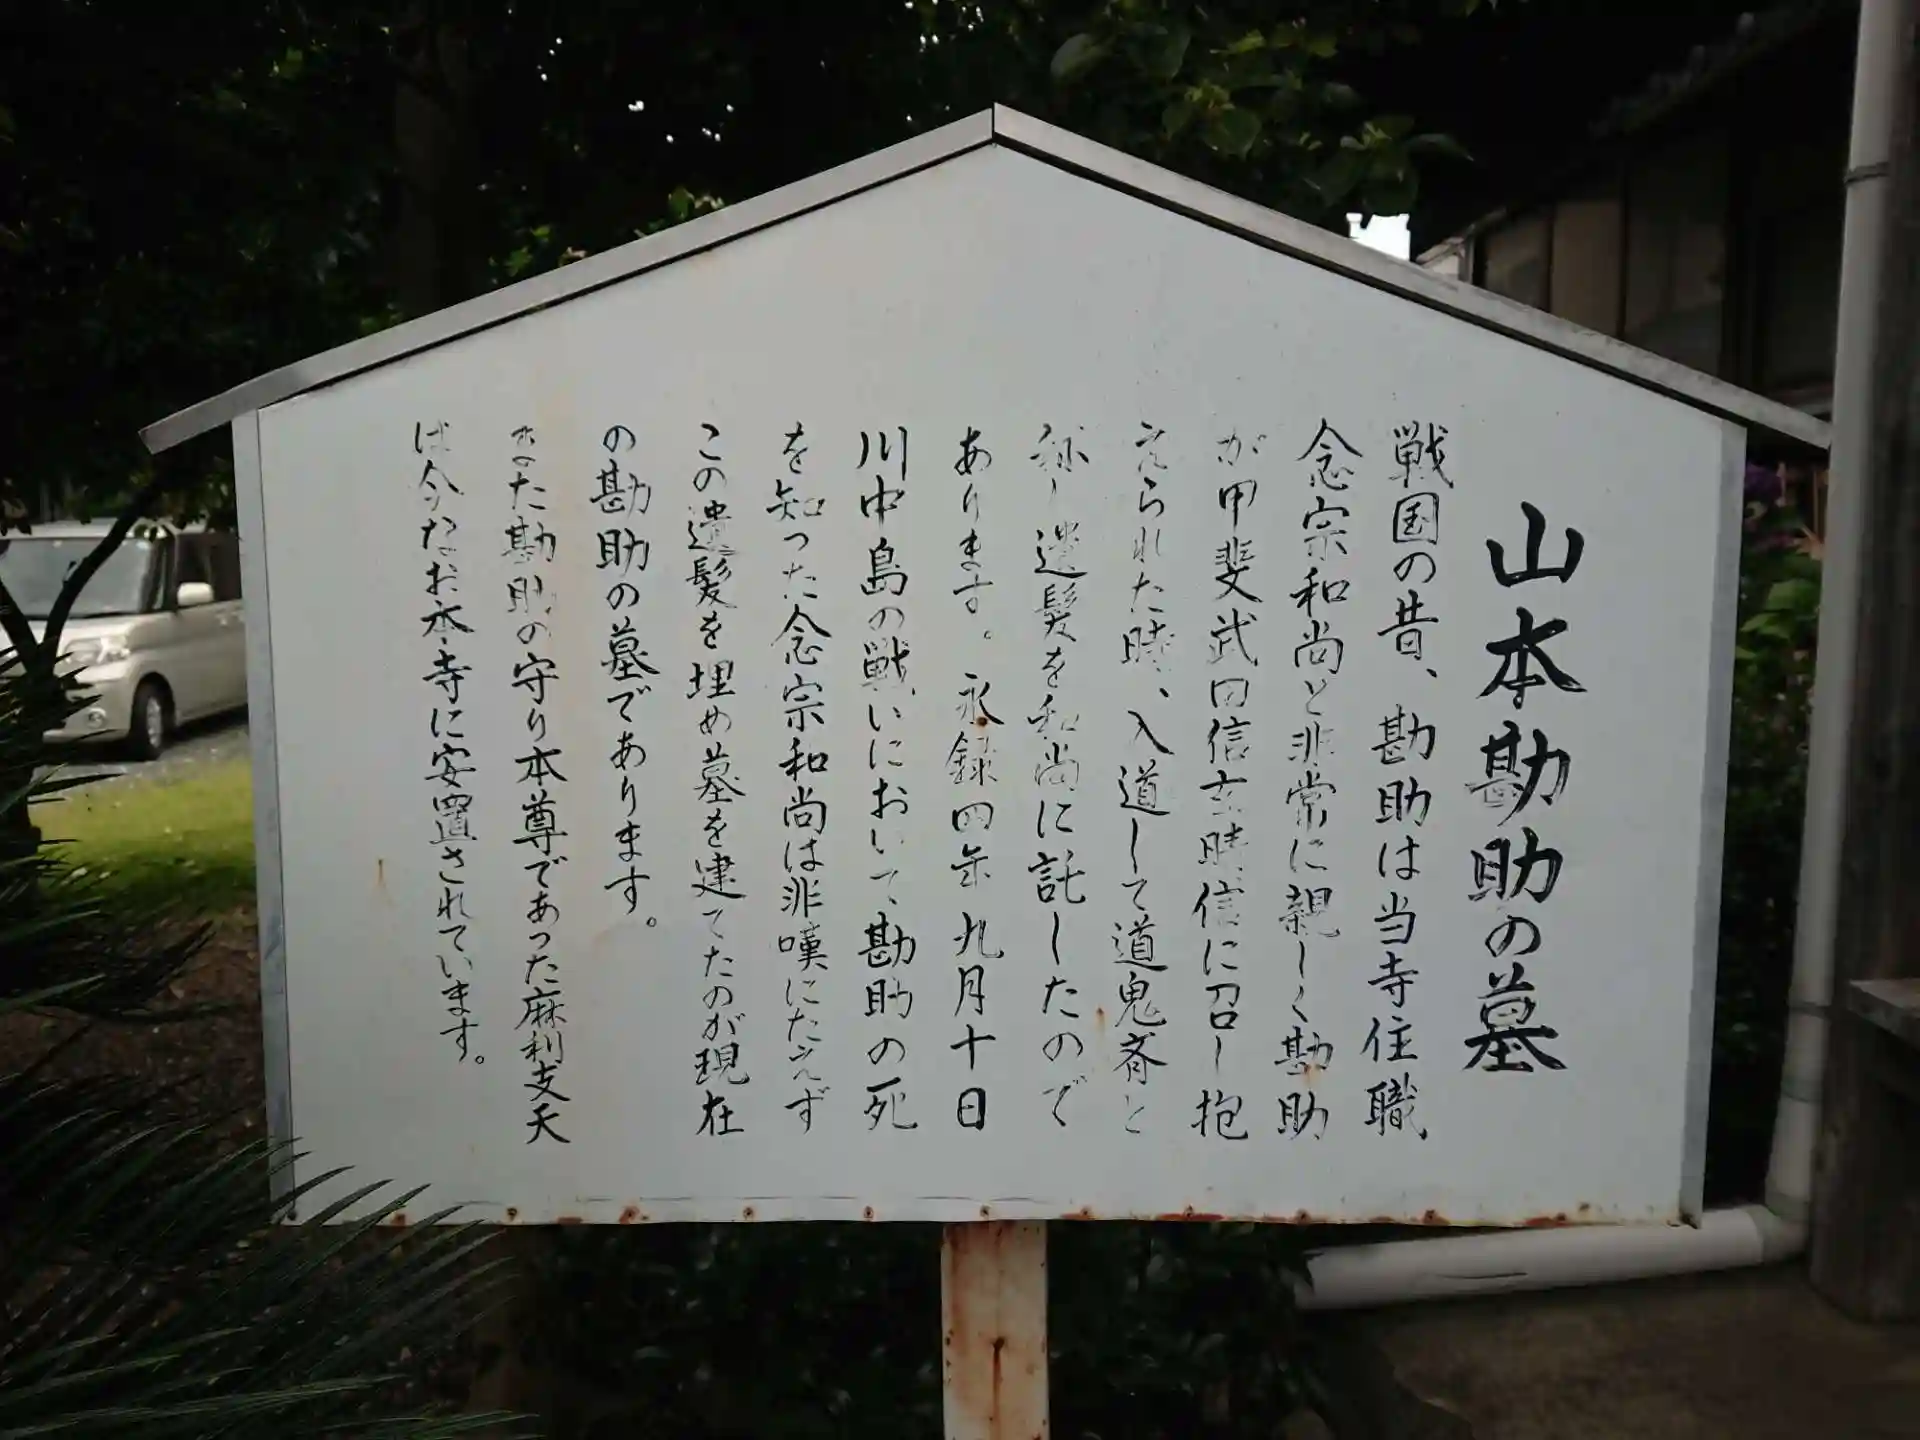 山本勘助の墓
戦国の昔、勘助は当寺住職
念宗和尚と非常に親しく勘助
が甲斐武田信玄晴信に召し抱
えられた時、入道して道鬼斉と
称し遺髪を和尚に託したので
あります。永録四年九月十日
川中島の戦いにおいて勘助の死
を知った念宗和尚は非嘆にたえず
この遺髪を埋め墓を建てたのが現在
の勘助の墓であります。
また勘助の守り本尊であった麻利支天
は今なお本寺に安置されています。